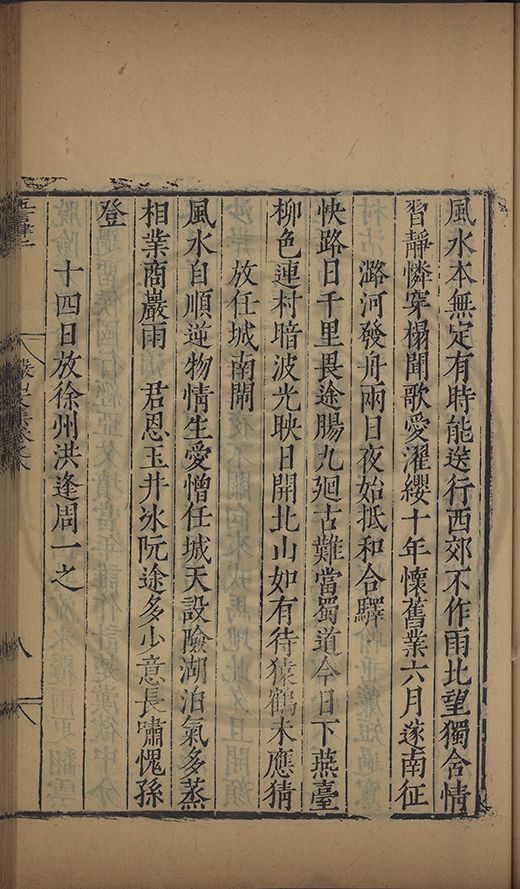 風水本無定有時能送行西郊不作雨北望獨含情
習靜憐穿榻聞歌愛濯纓十年懷舊業六月遂南征
潞河發舟兩日夜始抵和合驛
快路日千里畏途腸九廻古難當蜀道今日下燕臺
柳色連村暗波光映日開北山如有待猿鶴未應猜
放任城南閘
風水自順逆物情生愛憎任城天設險湖泊氣多蒸
相業商巖雨 君恩玉井冰阮途多少意長嘯愧孫
登
十四日放徐州洪逢周一之
八